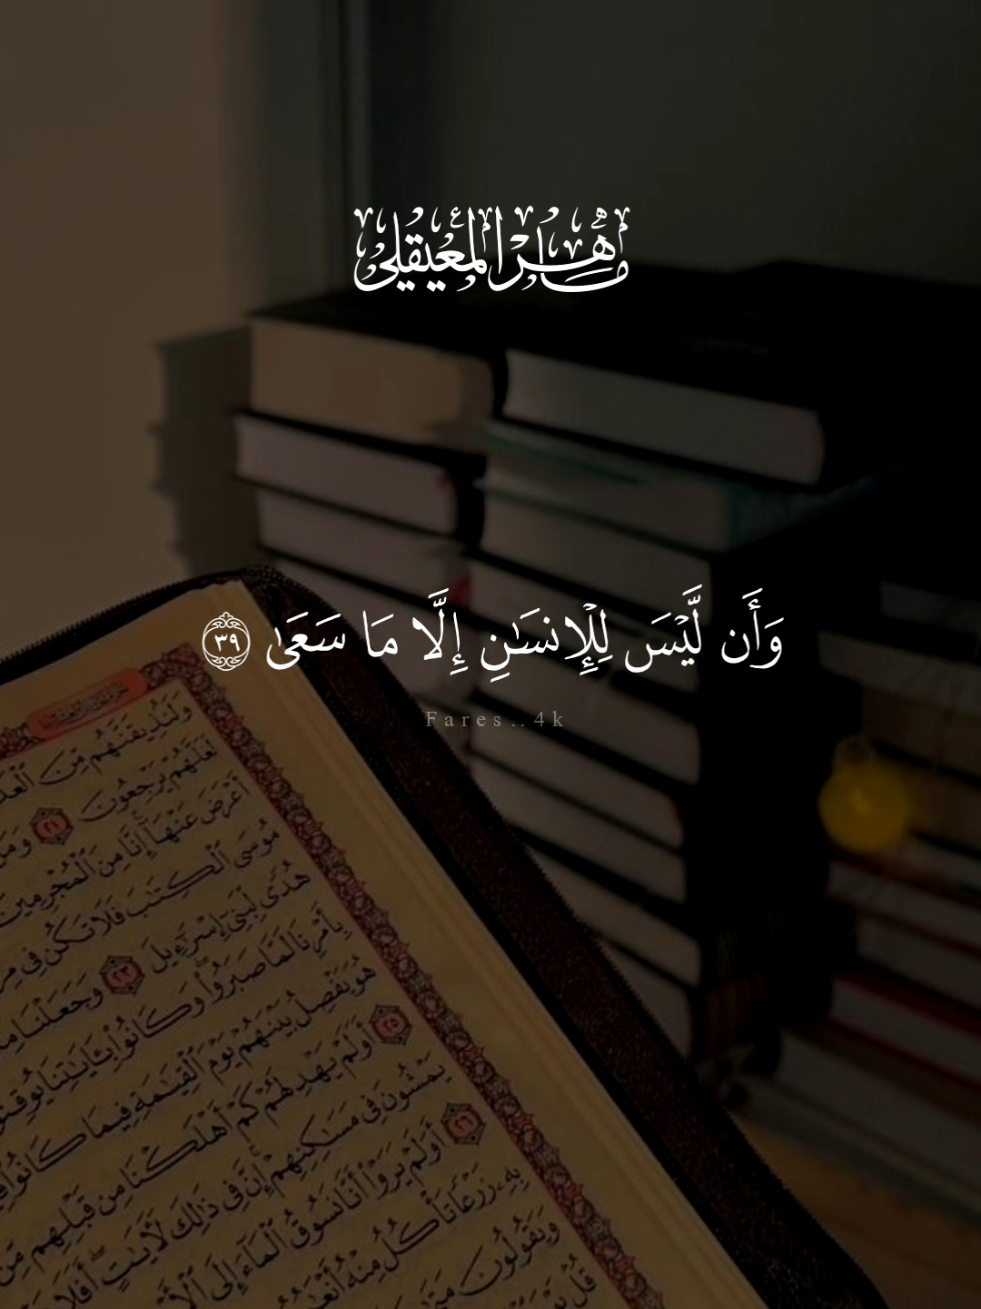 ماهر المعيقلي
وَأَن لَّيْسَ لِلْإِنسَـٰنِ إِلَّا مَا سَعَىٰ ٣٩
Fares..4k
وَلَنُذِيقَنَّهُم مِّنَ ٱلْعَذَ
لَعَلَّهُمْ يَرْجِعُونَ ٢١ وَمَنْ
أَعْرَضَ عَنْهَآ إِنَّا مِنَ ٱلْمُجْرِمِينَ
مُوسَى ٱلْكِتَـٰبَ فَلَا تَكُن فِى مِرْ
هُدًى لِّبَنِىٓ إِسْرَٰٓءِيلَ ٢٣ وَجَعَلْنَا مِ
بِأَمْرِنَا لَمَّا صَبَرُوا۟ وَكَانُوا۟ بِـَٔايَـٰتِنَا يُوقِنُو
هُوَ يَفْصِلُ بَيْنَهُمْ يَوْمَ ٱلْقِيَـٰمَةِ فِيمَا كَانُوا۟ فِ
٢٥ أَوَلَمْ يَهْدِ لَهُمْ كَمْ أَهْلَكْنَا مِن قَبْلِهِم مِّنَ
يَمْشُونَ فِى مَسَـٰكِنِهِمْ إِنَّ فِى ذَٰلِكَ لَـَٔايَـٰتٍ أَفَلَا
٢٦ أَوَلَمْ يَرَوْا۟ أَنَّا نَسُوقُ ٱلْمَآءَ إِلَى ٱلْأَ
بِهِۦ زَرْعًا تَأْكُلُ مِنْهُ أَنْعَـٰ
وَيَقُولُونَ مَتَىٰ
قُلْ يَوْمَ